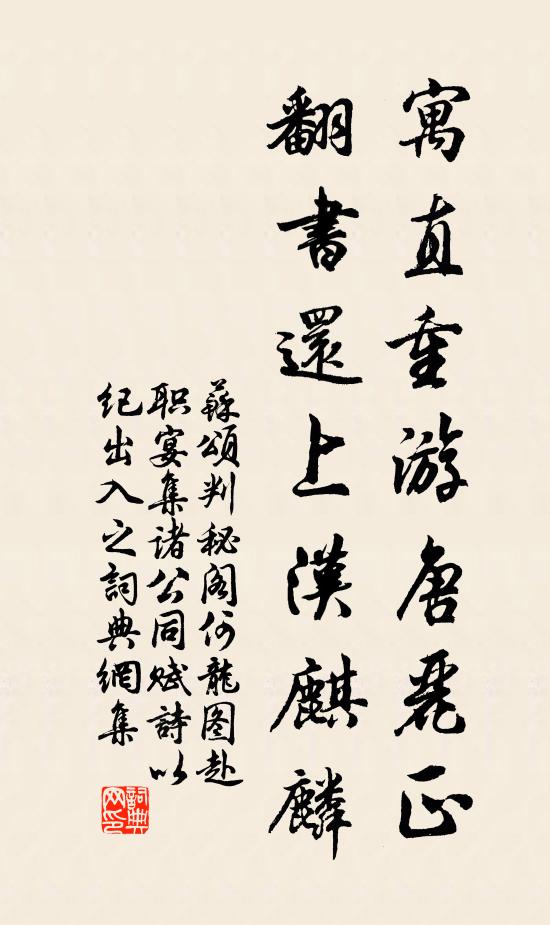 寓直重游唐麗正
翻書還上漢麒麟
蘇頌判秘阁何龍图赴
职宴集诸公同赋詩以
纪出入之詞典網集
詞典网印